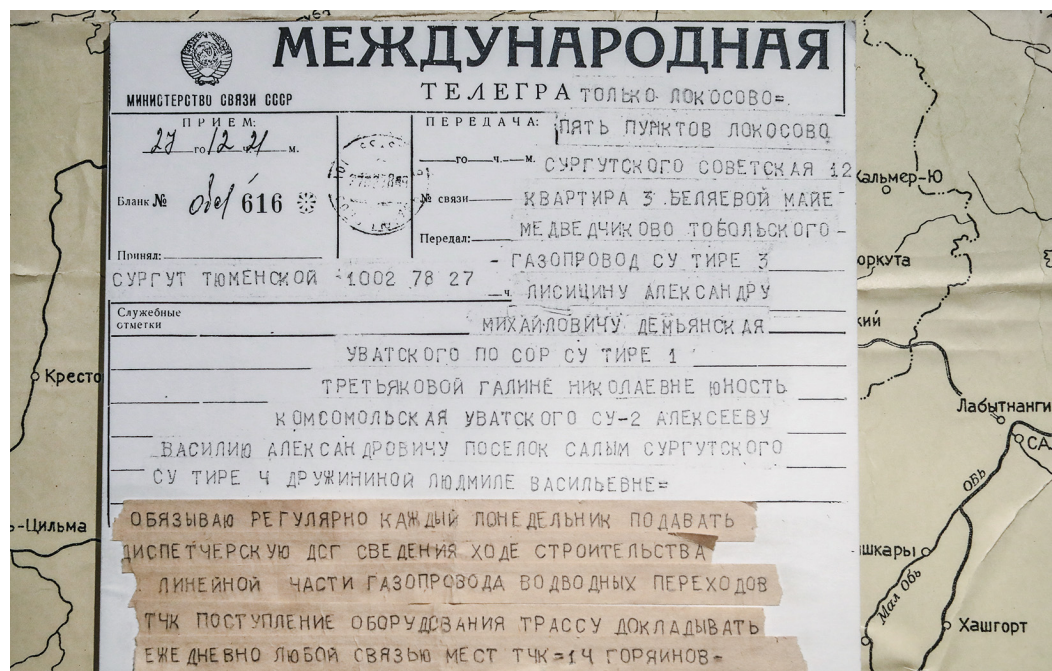 МЕЖДУНАРОДНАЯ
МИНИСТЕРСТВО СВЯЗИ СССР
ТЕЛЕГРА ТОЛЬКО ЛОКОСОВО=
ПРИЕМ:
27 го 12 ч. 21 м.
Бланк № 616
Принял:
ПЕРЕДАЧА:
го ч. м.
№ связи
Передал:
ч.
ПЯТЬ ПУНКТОВ ЛОКОСОВО
СУРГУТСКОГО СОВЕТСКАЯ 12
КВАРТИРА 3 БЕЛЯЕВОЙ МАЙЕ
МЕДВЕДЧИКОВО ТОБОЛЬСКОГО-
- ГАЗОПРОВОД СУ ТИРЕ 3
СУРГУТ ТЮМЕНСКОЙ 1002 78 27
ЛИСИЦИНУ АЛЕКСАНДРУ
Служебные
отметки
МИХАЙЛОВИЧУ ДЕМЬЯНСКАЯ
УВАТСКОГО ПО СОР СУ ТИРЕ 1
ТРЕТЬЯКОВОЙ ГАЛИНЕ НИКОЛАЕВНЕ ЮНОСТЬ
КОМСОМОЛЬСКАЯ УВАТСКОГО СУ-2 АЛЕКСЕЕВУ
ВАСИЛИЮ АЛЕКСАНДРОВИЧУ ПОСЕЛОК САЛЫМ СУРГУТСКОГО
СУ ТИРЕ 4 ДРУЖИНИНОЙ ЛЮДМИЛЕ ВАСИЛЬЕВНЕ=
ОБЯЗЫВАЮ РЕГУЛЯРНО КАЖДЫЙ ПОНЕДЕЛЬНИК ПОДАВАТЬ
ДИСПЕТЧЕРСКУЮ ДСГ СВЕДЕНИЯ ХОДЕ СТРОИТЕЛЬСТВА
ЛИНЕЙНОЙ ЧАСТИ ГАЗОПРОВОДА ВОДВОДНЫХ ПЕРЕХОДОВ
ТЧК ПОСТУПЛЕНИЕ ОБОРУДОВАНИЯ ТРАССУ ДОКЛАДЫВАТЬ
ЕЖЕДНЕВНО ЛЮБОЙ СВЯЗЬЮ МЕСТ ТЧК=14 ГОРЯИНОВ-
Кресто
-Цильма
Кальмер-Ю
оркута
кий
Лабытнанги
СА
ОБЬ
шкары
Мал Обь
Хашгорт